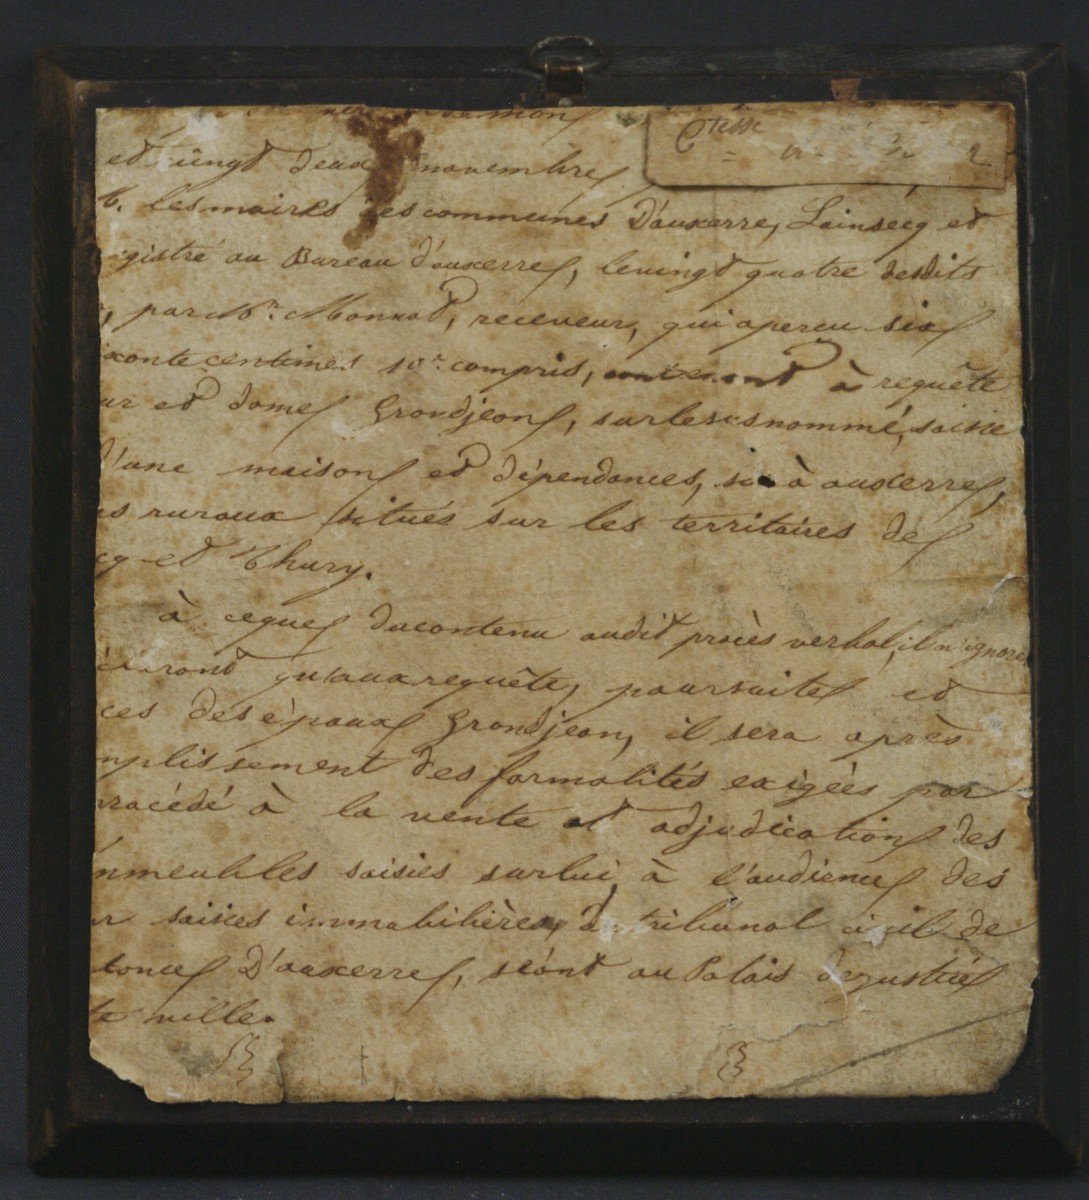 mon
Ctesse
et vingt deux novembre
M. les maires des communes D'auxerre, Lainsecq et
gistré au Bureau d'auxerre, le vingt quatre desdits
, par Mr. Monnot, receveur, qui a percu six
xante centimes 10e compris, contenant à requête
ur et dame Grandjean, sur le susnommé, saisie
d'une maison et dépendances, sis à auxerre,
s ruraux situés sur les territoires de
cq et Thury.
à ce que du contenu audit procès verbal, il n'ignore
arant qu'aux requête, poursuite et
ces des époux Grandjean, il sera après
mplissement des formalités exigées par
rocédé à la vente et adjudication des
mmeubles saisies sur lui, à l'audience des
r saisies immobilières, du tribunal civil de
tance D'auxerre, séant au Palais de justice
te ville.